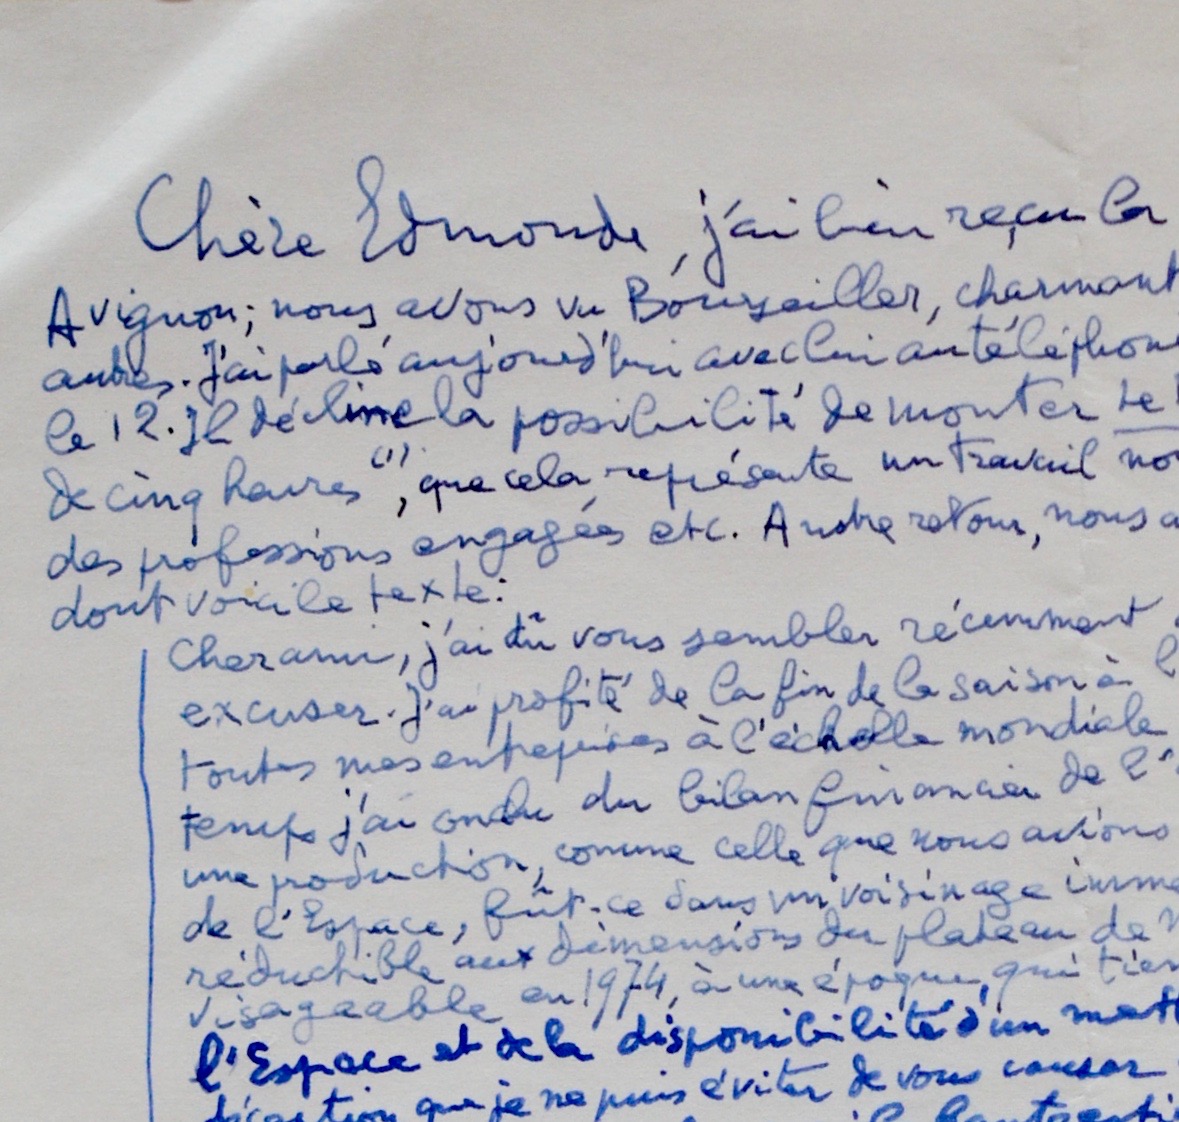 Chère Edmonde, j'ai bien reçu la
Avignon; nous avons vu Bourseiller, charmant
autres. J'ai parlé aujourd'hui avec lui au téléphone
le 12. Il décline la possibilité de monter te
de cinq heures (1), que cela représente un travail
des professions engagées etc. A notre retour, nous a
dont voici le texte:
Cher ami, j'ai dû vous sembler récemment
excuser. J'ai profité de la fin de la saison à l
toutes mes entreprises à l'échelle mondiale
temps j'ai du bilan financier de l'
une production, comme celle que nous avions
de l'Espace, fût-ce dans un voisinage imme
réductible aux dimensions du plateau de
visageable en 1974, à une époque, qui tien
l'Espace et de la disponibilité d'un mett
que je ne puis éviter de vous causer